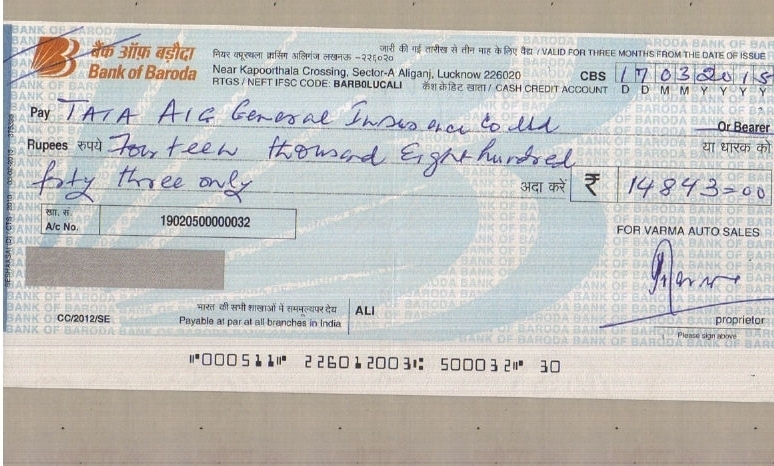 बैंक ऑफ़ बड़ौदा
Bank of Baroda
नियर कपूरथला क्रासिंग अलिगंज लखनऊ -२२६०२०
Near Kapoorthala Crossing, Sector-A Aliganj, Lucknow 226020
RTGS / NEFT IFSC CODE: BARB0LUCALI
जारी की गई तारीख से तीन माह के लिए वैध / VALID FOR THREE MONTHS FROM THE DATE OF ISSUE
CBS 17032015
D D M M Y Y Y Y
कैश क्रेडिट खाता / CASH CREDIT ACCOUNT
Pay TATA AIG General Insurance Co Ltd Or Bearer
या धारक को
Rupees रुपये Fourteen thousand Eight hundred
forty three only
अदा करें ₹ 14843=00
खा. सं.
A/c No. 19020500000032
FOR VARMA AUTO SALES
proprietor
Please sign above
CC/2012/SE
भारत की सभी शाखाओं में सममूल्यपर देय
Payable at par at all branches in India
ALI
⑈000511⑈ 226012003⑆ 500032⑈ 30